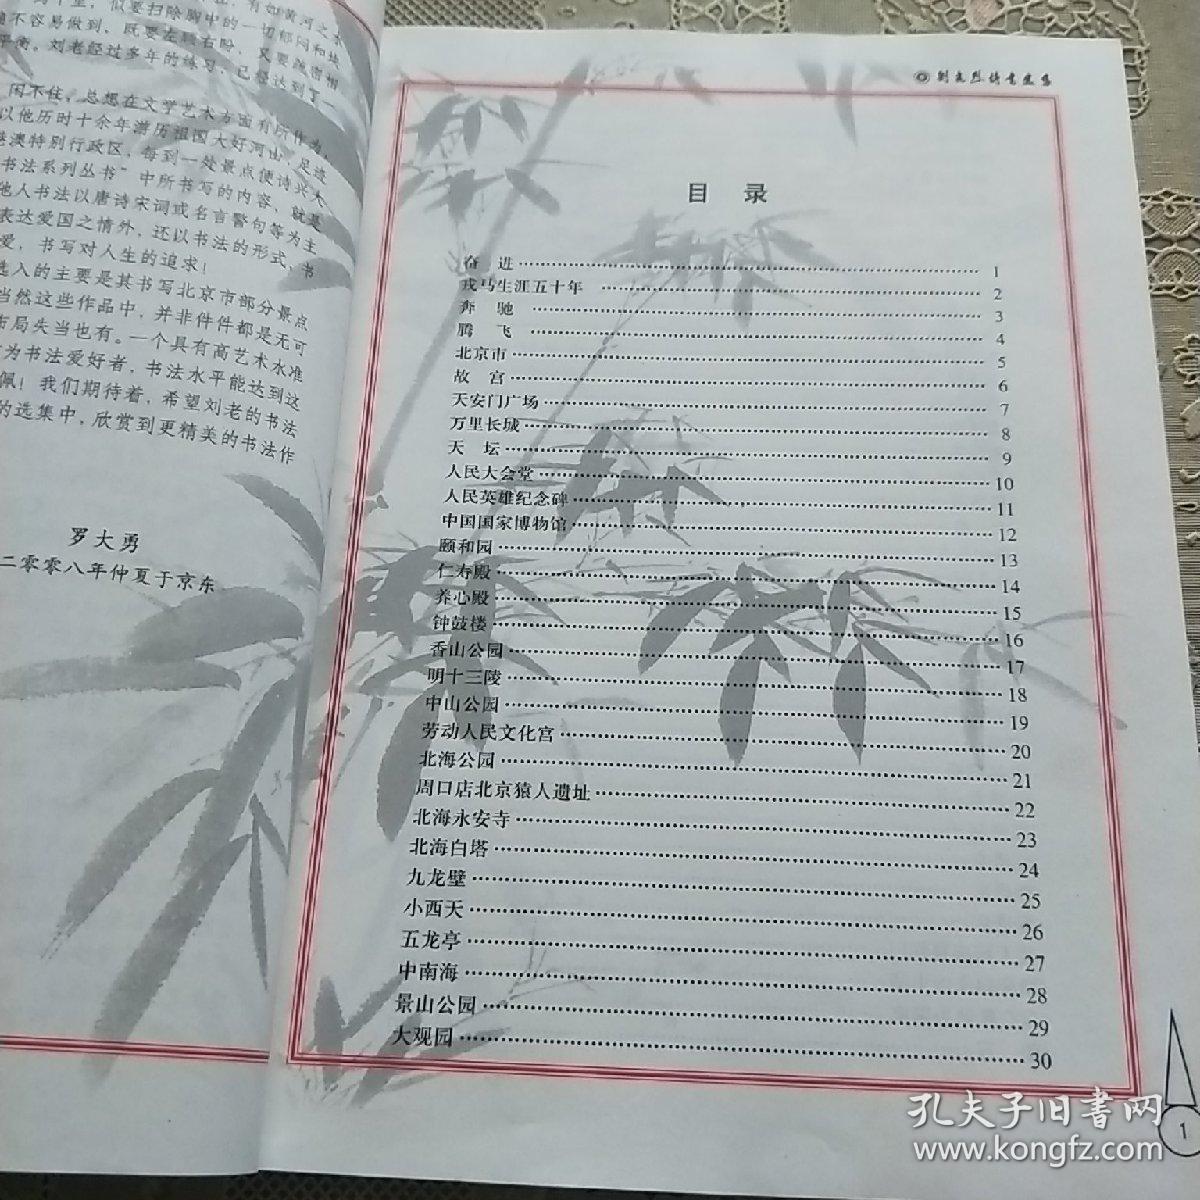 有如黄河之水
似要扫除胸中的一切郁闷和块
不容易做到，既要左顾右盼，又要
平衡。刘老经过多年的练习，已经达到了
闲不住，总想在文学艺术方面有所作为，
以他历时十余年游历祖国大好河山，足迹
港澳特别行政区，每到一处景点便诗兴大
书法系列丛书”中所书写的内容，就是
他人书法以唐诗宋词或名言警句等为主
表达爱国之情外，还以书法的形式，书
爱，书写对人生的追求！
选入的主要是其书写北京市部分景点
当然这些作品中，并非件件都是无可
布局失当也有。一个具有高艺术水准
为书法爱好者，书法水平能达到这
佩！我们期待着，希望刘老的书法
的选集中，欣赏到更精美的书法作
罗大勇
二零零八年仲夏于京东
目 录
奋 进 1
戎马生涯五十年 2
奔 驰 3
腾 飞 4
北京市 5
故 宫 6
天安门广场 7
万里长城 8
天 坛 9
人民大会堂 10
人民英雄纪念碑 11
中国国家博物馆 12
颐和园 13
仁寿殿 14
养心殿 15
钟鼓楼 16
香山公园 17
明十三陵 18
中山公园 19
劳动人民文化宫 20
北海公园 21
周口店北京猿人遗址 22
北海永安寺 23
北海白塔 24
九龙壁 25
小西天 26
五龙亭 27
中南海 28
景山公园 29
大观园 30
1
孔夫子旧书网
www.kongfz.com